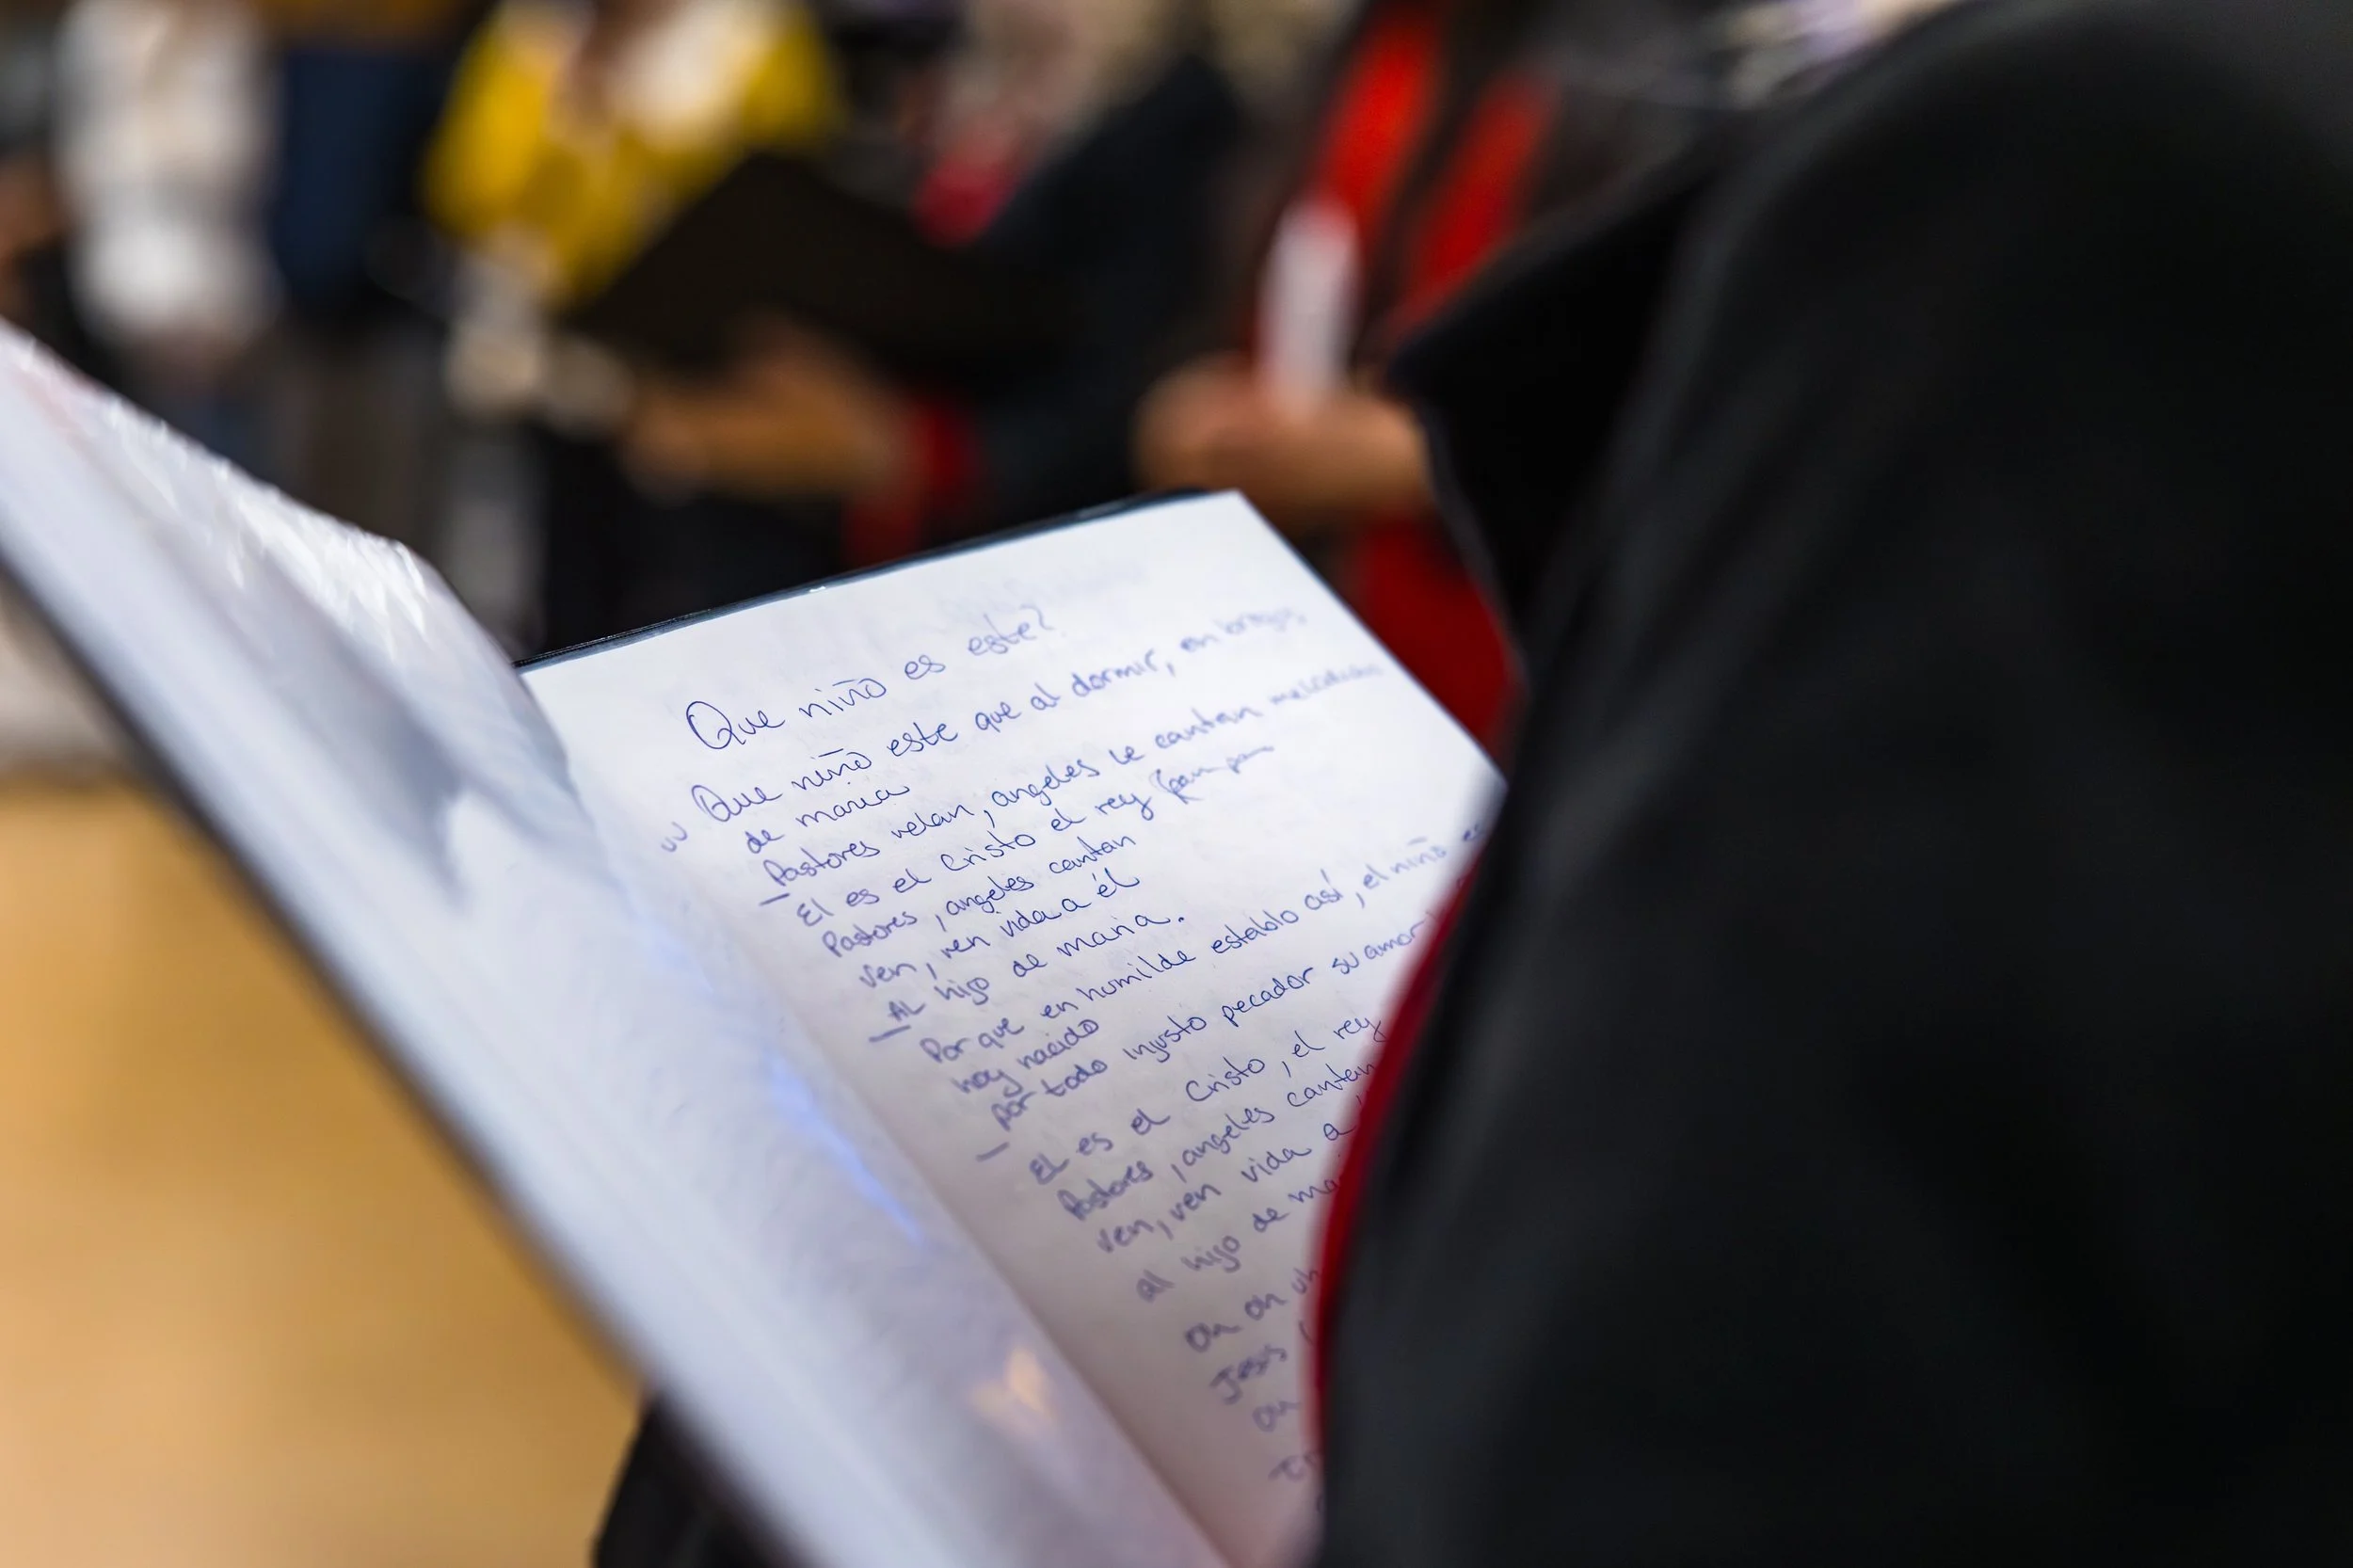 Que niño es este?
Que niño este que al dormir, en brazos
de maria
Pastores velan, angeles le cantan melodias
El es el Cristo el rey (pam pam
Pastores, angeles cantan
ven, ven vida a él
Al hijo de maria.
Por que en humilde establo así, el niño es
hoy nacido
Por todo injusto pecador su amor
El es el Cristo, el rey
Pastores, angeles cantan
ven, ven vida a
al hijo de ma
oh oh oh
Jesus
oh